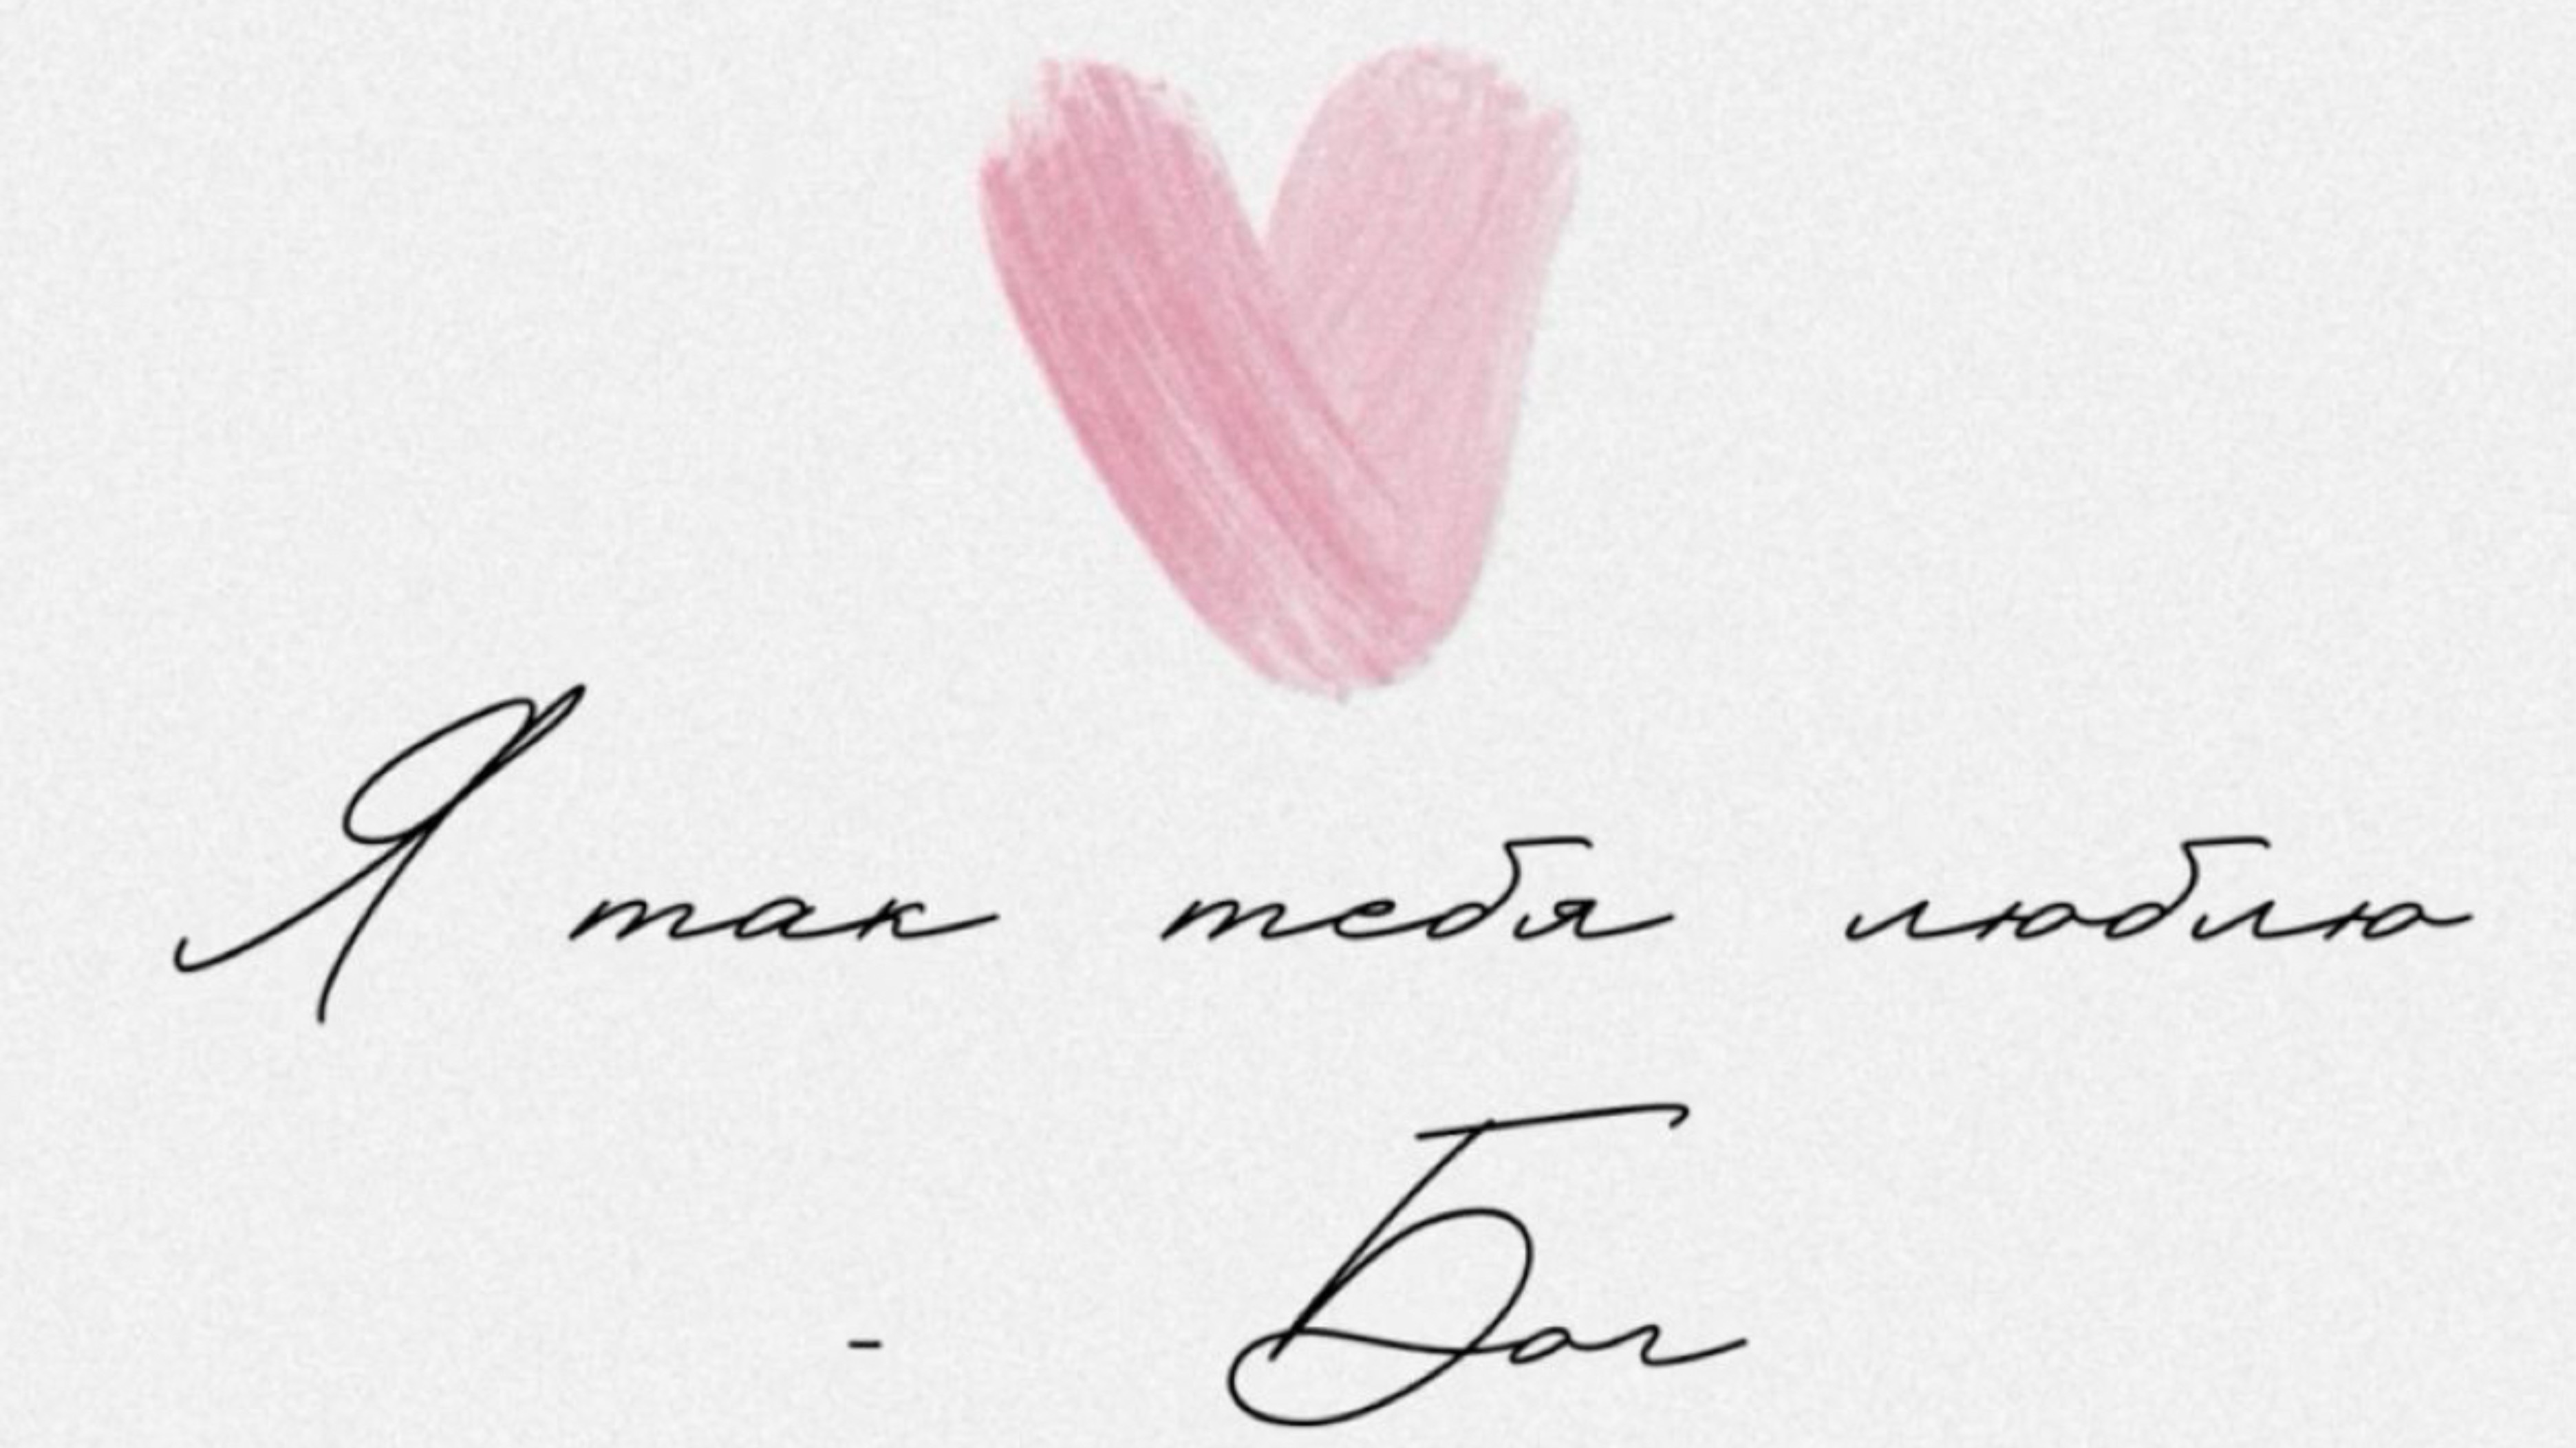 Я так тебя люблю
- Бог